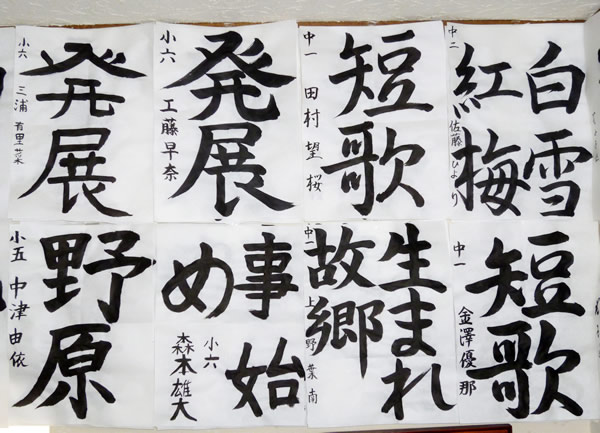 白雪
紅梅
中二 佐藤ひより
短歌
中一 田村望桜
発展
小六 工藤早奈
発展
小六 三浦有里菜
短歌
中一 金澤優那
生まれ
故郷
中一 上野葉南
事始
め
小六
森本雄大
野原
小五 中津由依